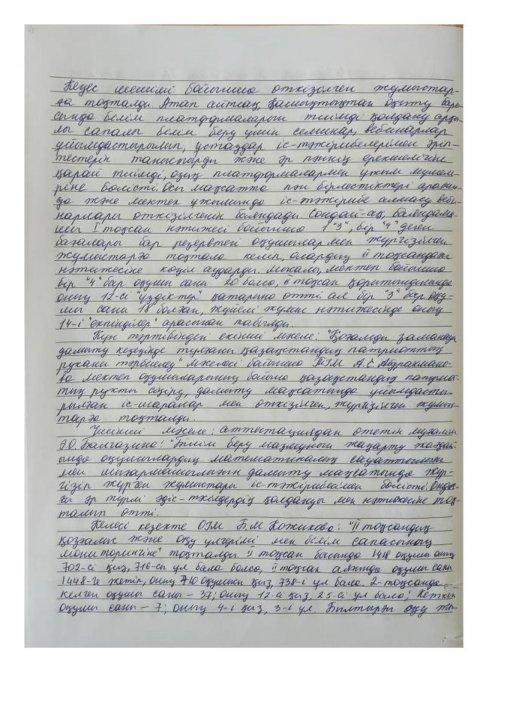 Кеңес шешімі бойынша өткізілген жұмыстар-
ға тоқталды. Атап айтсақ қашықтықтан оқыту бары-
сында білім платформаларын тиімді қолдану арқы-
лы сапалы білім беру үшін семинар, вебинарлар
ұйымдастырылып, ұстаздар іс-тәжірибелерімен әріп-
тестерін таныстырды және әр пәннің ерекшелігіне
қарай тиімді, озық платформалармен ұжым мүшеле-
ріне бөлісті. Осы мақсатта пән бірлестіктері арасын-
да және мектеп ұжымында іс-тәжірибе алмасу веби-
нарлары өткізілгенін баяндады. Сондай-ақ, баяндама-
шы I тоқсан нәтижесі бойынша 1 "3", бір "4" деген
бағалары бар резервтегі оқушылармен жүргізілген
жұмыстарға тоқтала келіп, олардың II тоқсандағы
нәтижесіне көңіл аударды. Мысалы, мектеп бойынша
бір "4" бар оқушы саны 20 болса, II тоқсан қорытындысында
оның 12-сі "үздіктер" қатарына өтті ал бір "3" бар оқу-
шы саны 18 болған, жүйелі жұмыс нәтижесінде оның
14-і "екпінділер" арасынан табылды.
Күн тәртібіндегі екінші мәселе: "Қоғамды заманауи
дамыту кезеңінде тұлғаның қазақстандық патриоттық
рухани тәрбиелеу" мәселесі бойынша ТІЖ А.С. Абрахмано-
ва мектеп оқушыларының бойына қазақстандық патриот-
тық рухты сіңіру, дамыту мақсатында ұйымдасты-
рылған іс-шаралар мен өткізілген, жүргізілген жұмыс-
тарға тоқталды.
Үшінші мәселе: аттестациядан өтетін мұғалім
Э.О. Балгазина: "Білім беру мазмұнын жаңарту жағдай-
ында оқушылардың математикалық сауаттылығы
мен шығармашылығын дамыту" мақсатында жүр-
гізіп жүрген жұмыстары іс-тәжірибесімен бөлісті. Ондағы
әр түрлі әдіс-тәсілдердің қолдануы мен нәтижесіне тоқ-
талып өтті.
Келесі кезекте ОІЖ Б.М. Кожикова: "II тоқсандық
қозғалыс және оқу үлгерімі мен білім сапасының
мониторингіне" тоқталды. II тоқсан басында 1418 оқушы оның
702-сі қыз, 716-сы ұл бала болса, II тоқсан аяғында оқушы саны
1448-ге жетіп, оның 710 оқушысы қыз, 738-і ұл бала. 2-тоқсанда
келген оқушы саны - 37; оның 12-сі қыз, 25-сі ұл бала; Кеткен
оқушы саны - 7; оның 4-і қыз, 3-і ұл. Былтырғы оқу жы-